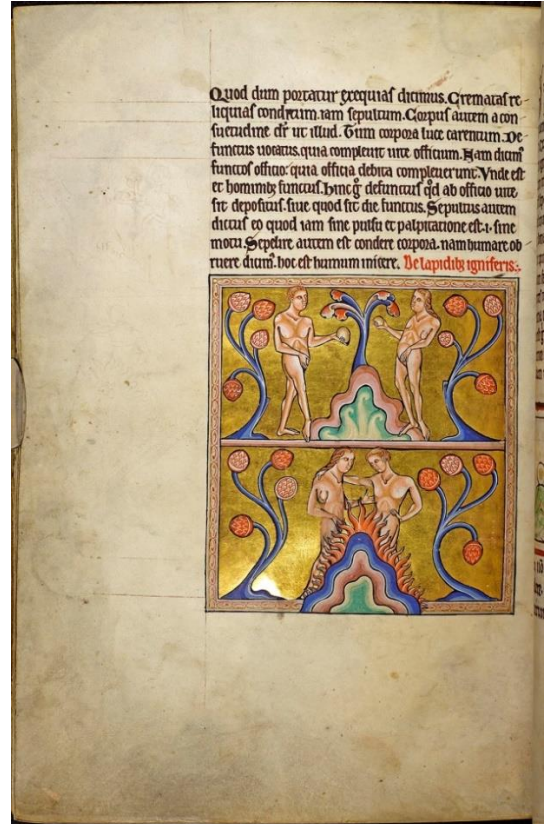 Quod dum portatur exequias dicimus. Crematas re-
liquias conditum. iam sepultum. Corpus autem a con-
suetudine dr̄ ut illud. Tum corpora luce carentum. De-
functus uocatus. quia compleuit uite officium. Nam dicim᷒
functos officio: quia officia debita compleuerunt. Vnde est
et honoribꝫ functus. Hinc g̃ defunctus qd̄ ab officio uite
sit depositus. siue quod sit die functus. Sepultus autem
dictus eo quod iam sine pulsu et palpitatione est .i. sine
motu. Sepelire autem est condere corpora. nam humare ob-
ruere dicim᷒. hoc est humum inicere. De lapidibꝫ igniferis.